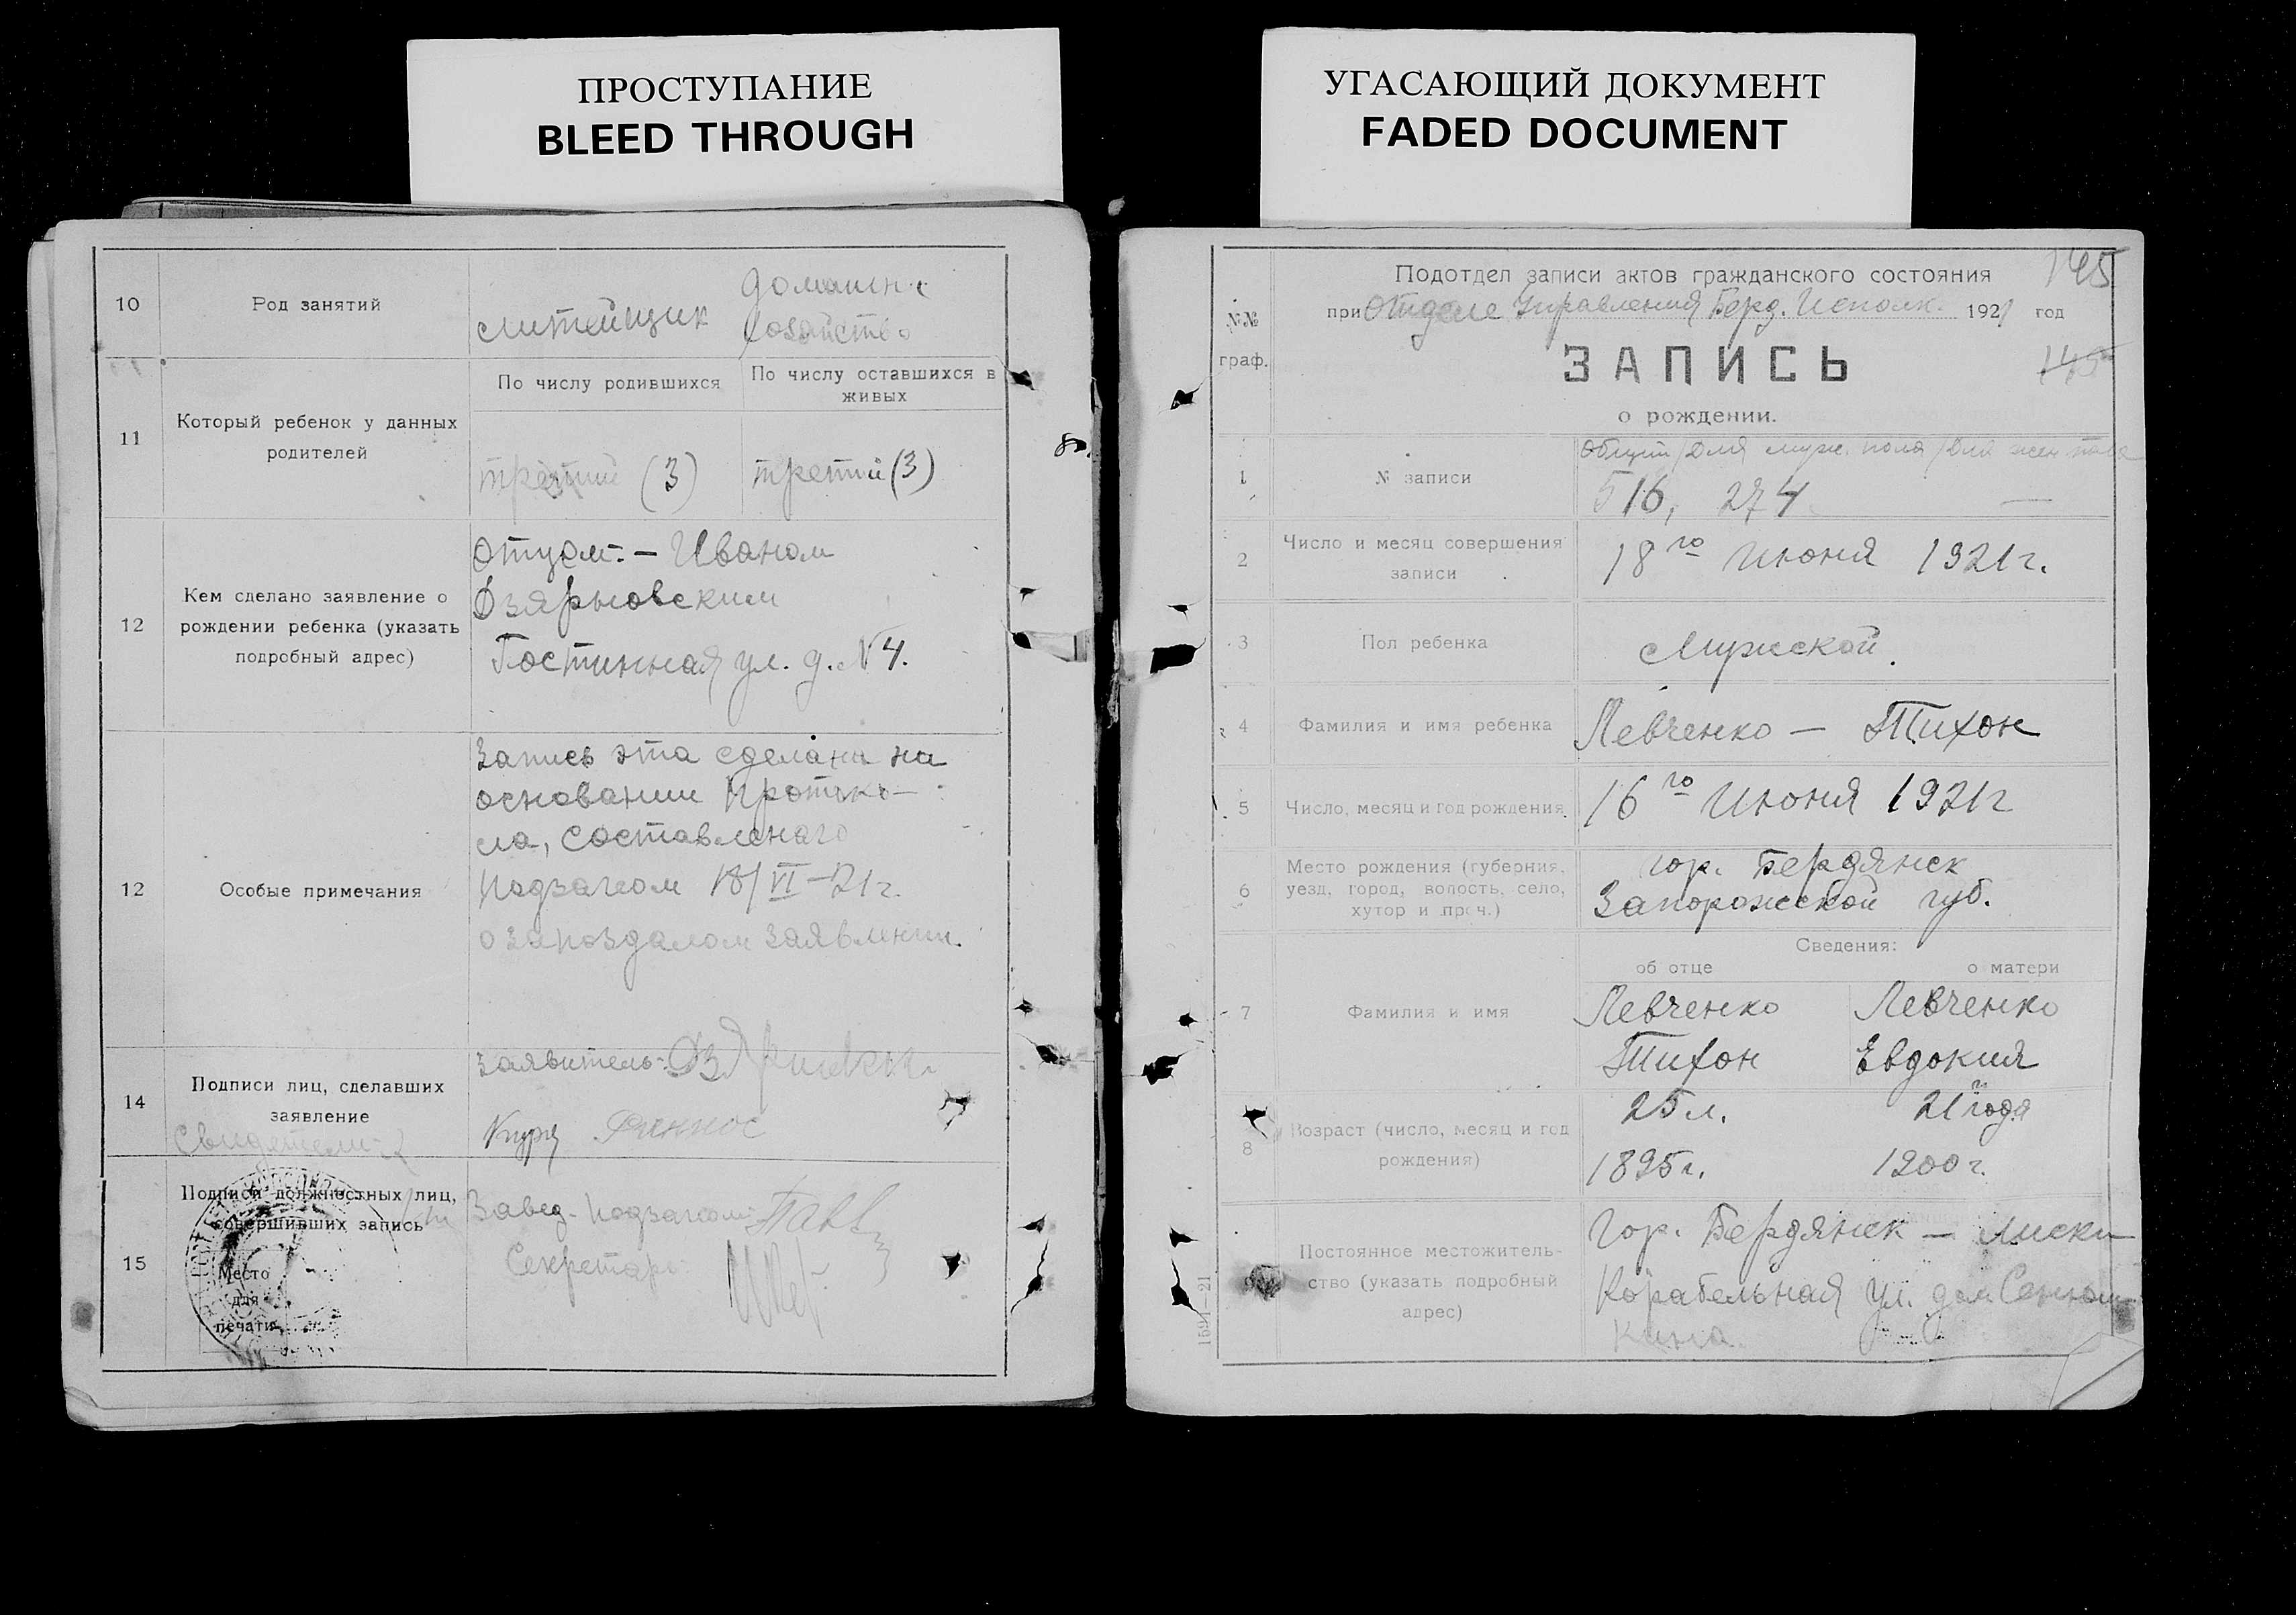 ПРОСТУПАНИЕ
BLEED THROUGH
10
Род занятий
литейщик
домашн.
хозяйство
11
Который ребенок у данных
родителей
По числу родившихся
По числу оставшихся в
живых
третий (3)
третий (3)
12
Кем сделано заявление о
рождении ребенка (указать
подробный адрес)
Отцом. — Иваном
Дзярновским
Гостинная ул. д. № 4.
12
Особые примечания
Запись эта сделана на
основании Протоко-
ла, составленаго
подзагсом 18/VI-21 г.
о запоздалом заявлении.
14
Подписи лиц, сделавших
заявление
Свидетели
Заявитель:
15
Подписи должностных лиц,
совершивших запись
Место
для
печати
Завед. подзагсом
Секретарь
УГАСАЮЩИЙ ДОКУМЕНТ
FADED DOCUMENT
145
№№
граф.
Подотдел записи актов гражданского состояния
при Отделе Управления Берд. Исполк. 1921 год
ЗАПИСЬ
145
о рождении.
1
№ записи
Общий / Для муж. пола / Для жен. пола
516, 274 —
2
Число и месяц совершения
записи
18го Июня 1921 г.
3
Пол ребенка
Мужской.
4
Фамилия и имя ребенка
Левченко — Тихон
5
Число, месяц и год рождения
16го Июня 1921 г
6
Место рождения (губерния,
уезд, город, волость, село,
хутор и проч.)
гор. Бердянск
Запорожской губ.
Сведения:
об отце
о матери
7
Фамилия и имя
Левченко
Тихон
Левченко
Евдокия
8
Возраст (число, месяц и год
рождения)
25 л.
1895 г.
21 года
1900 г.
Постоянное местожитель-
ство (указать подробный
адрес)
Гор. Бердянск — Лиски
Корабельная ул. дом
кина
1591—21